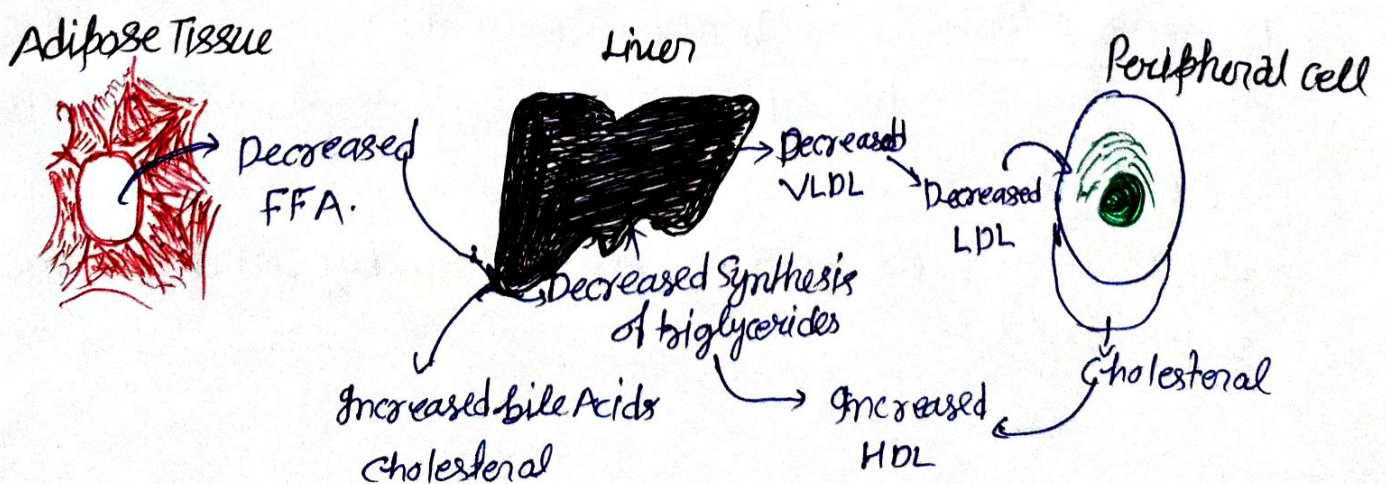 Adipose Tissue
Liver
Peripheral cell
Decreased
FFA.
Decreased
VLDL
Decreased
LDL
Decreased Synthesis
of triglycerides
Increased bile Acids
Cholesteral
Increased
HDL
Cholesteral